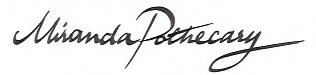 Miranda Pothecary